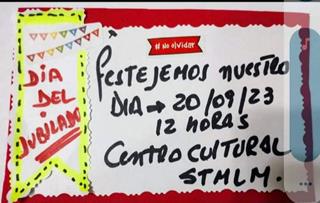 DÍA
DEL
JUBILADO
#No olvidar
FESTEJEMOS NUESTRO
DIA → 20/09/23
12 HORAS
CENTRO CULTURAL
STMLM.